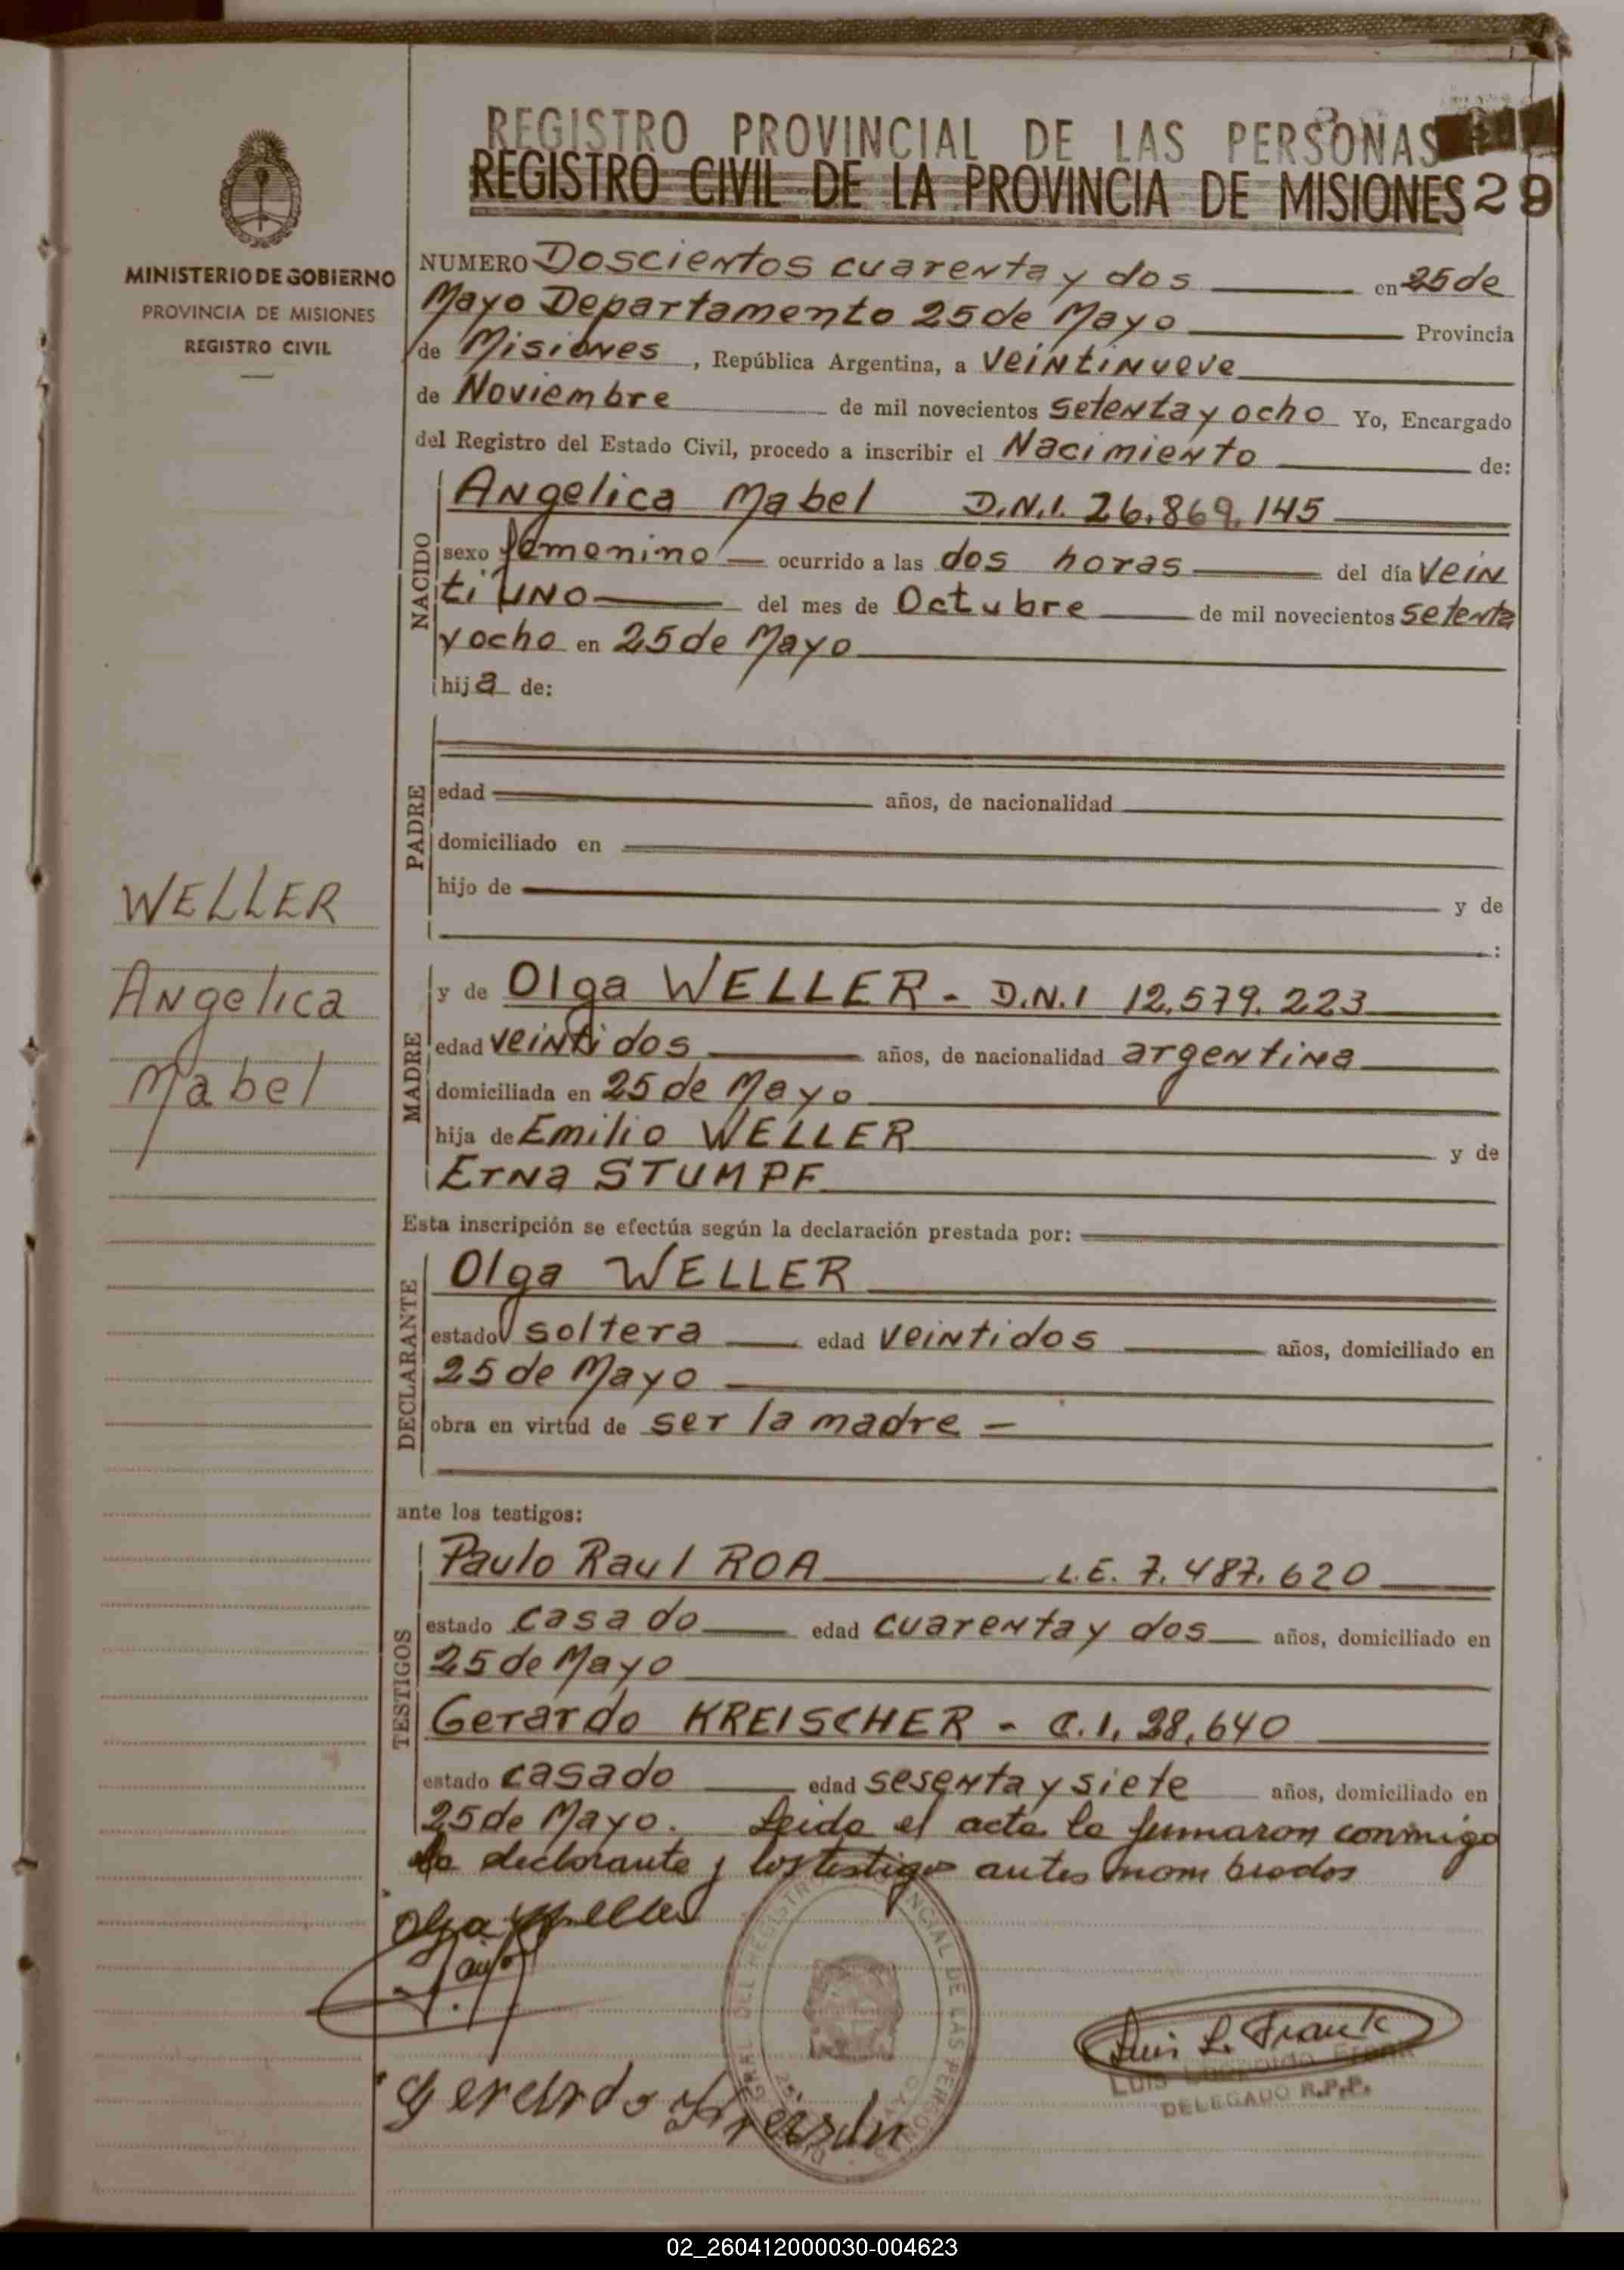 REGISTRO PROVINCIAL DE LAS PERSONAS
REGISTRO CIVIL DE LA PROVINCIA DE MISIONES 29
MINISTERIO DE GOBIERNO
PROVINCIA DE MISIONES
REGISTRO CIVIL
NUMERO Doscientos cuarenta y dos en 25 de
Mayo Departamento 25 de Mayo Provincia
de Misiones, República Argentina, a veintinueve
de Noviembre de mil novecientos setenta y ocho Yo, Encargado
del Registro del Estado Civil, procedo a inscribir el Nacimiento de:
NACIDO
Angelica Mabel D.N.I. 26.869.145
sexo femenino ocurrido a las dos horas del día vein
ti uno del mes de Octubre de mil novecientos setenta
y ocho en 25 de Mayo
hija de:
PADRE
edad años, de nacionalidad
domiciliado en
hijo de y de
:
WELLER
Angelica
Mabel
MADRE
y de Olga WELLER - D.N.I 12.579.223
edad veinti dos años, de nacionalidad argentina
domiciliada en 25 de Mayo
hija de Emilio WELLER y de
Erna STUMPF
Esta inscripción se efectúa según la declaración prestada por:
DECLARANTE
Olga WELLER
estado soltera edad veintidos años, domiciliado en
25 de Mayo
obra en virtud de ser la madre -
ante los testigos:
TESTIGOS
Paulo Raul ROA L.E. 7.487.620
estado casado edad cuarenta y dos años, domiciliado en
25 de Mayo
Gerardo KREISCHER - C.I. 28.640
estado casado edad sesenta y siete años, domiciliado en
25 de Mayo. Leida el acta la firmaron conmigo
la declarante y los testigos antes nombrados
Olga Weller
Gerardo Kreischer
Luis L. Frank
DELEGADO R.P.P.
02_260412000030-004623